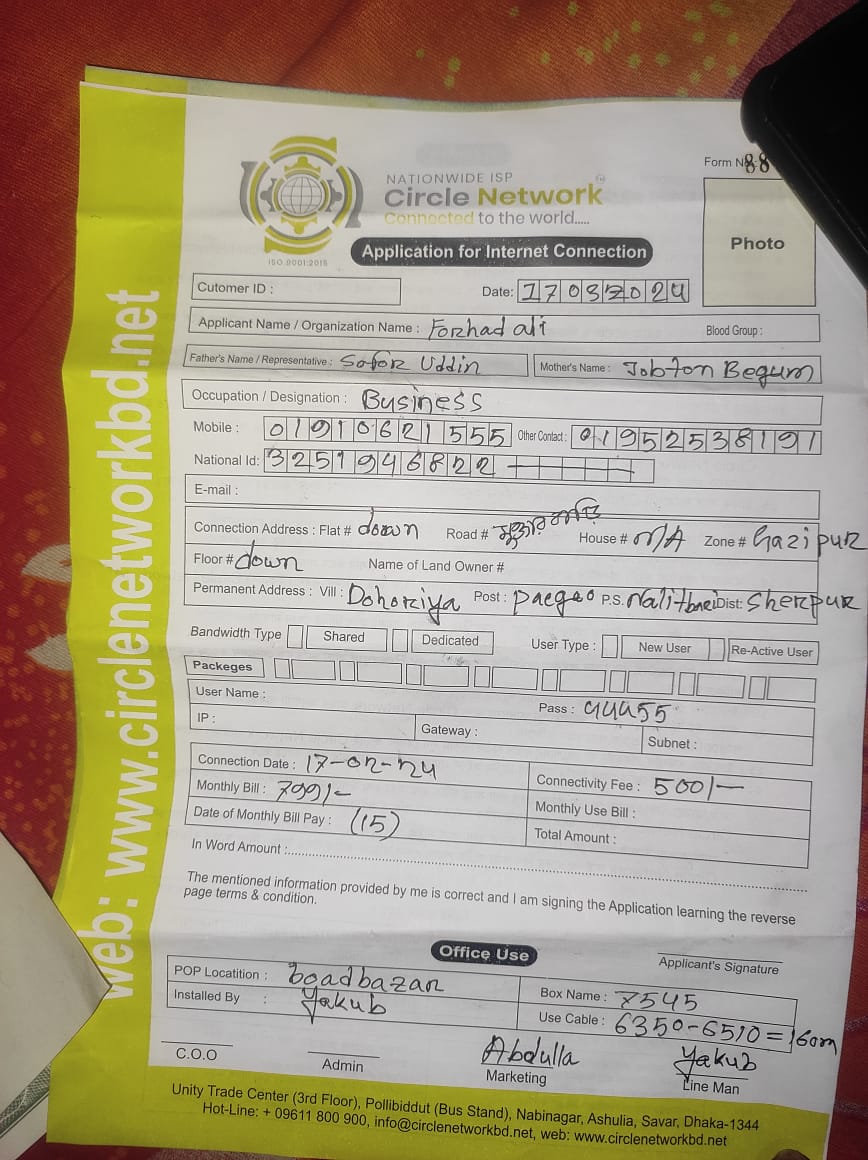 NATIONWIDE ISP
Circle Network
Connected to the world.....
ISO 9001:2015
Form N 88
Photo
Application for Internet Connection
Cutomer ID :
Date: 17032024
Applicant Name / Organization Name : Forhad ali Blood Group :
Father's Name / Representative : Sofor Uddin Mother's Name : Jobton Begum
Occupation / Designation : Business
Mobile : 01910621555 Other Contact : 01952538191
National Id: 3251946822
E-mail :
Connection Address : Flat # down Road # House # N/A Zone # Gazipur
Floor # down Name of Land Owner #
Permanent Address : Vill : Dohoriya Post : Paegao P.S. Nalitbari Dist: Sherpur
Bandwidth Type Shared Dedicated User Type : New User Re-Active User
Packeges
User Name : Pass : 44455
IP : Gateway : Subnet :
Connection Date : 17-02-24 Connectivity Fee : 500/-
Monthly Bill : 799/- Monthly Use Bill :
Date of Monthly Bill Pay : (15) Total Amount :
In Word Amount :
The mentioned information provided by me is correct and I am signing the Application learning the reverse
page terms & condition.
Office Use
Applicant's Signature
POP Locatition : boadbazar Box Name : 7545
Installed By : Yakub Use Cable : 6350-6510=160m
C.O.O Admin Abdulla Marketing Yakub Line Man
Unity Trade Center (3rd Floor), Pollibiddut (Bus Stand), Nabinagar, Ashulia, Savar, Dhaka-1344
Hot-Line: + 09611 800 900, info@circlenetworkbd.net, web: www.circlenetworkbd.net
web: www.circlenetworkbd.net